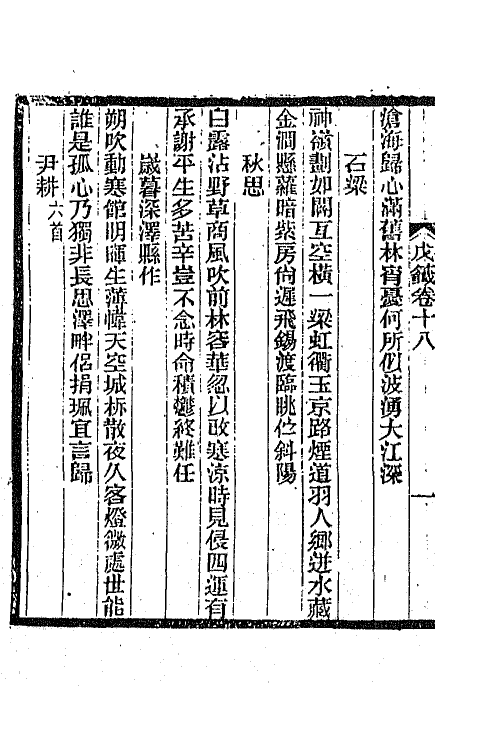 戊籖卷十八
一
滄海歸心滿舊林宵憂何所似波湧大江深
石梁
神嶺劃如闢互空橫一梁虹衢玉京路煙道羽人鄉迸水藏
金澗懸蘿暗紫房尙遲飛錫渡臨眺伫斜陽
秋思
白露沾野草商風吹前林容華忽以改寒涼時見侵四運有
承謝平生多苦辛豈不念時命積鬱終難任
歲暮深澤縣作
朔吹動寒館明暉生薄幃天空城柝散夜久客燈微處世能
誰是孤心乃獨非長思澤畔侶捐珮宜言歸
尹耕六首